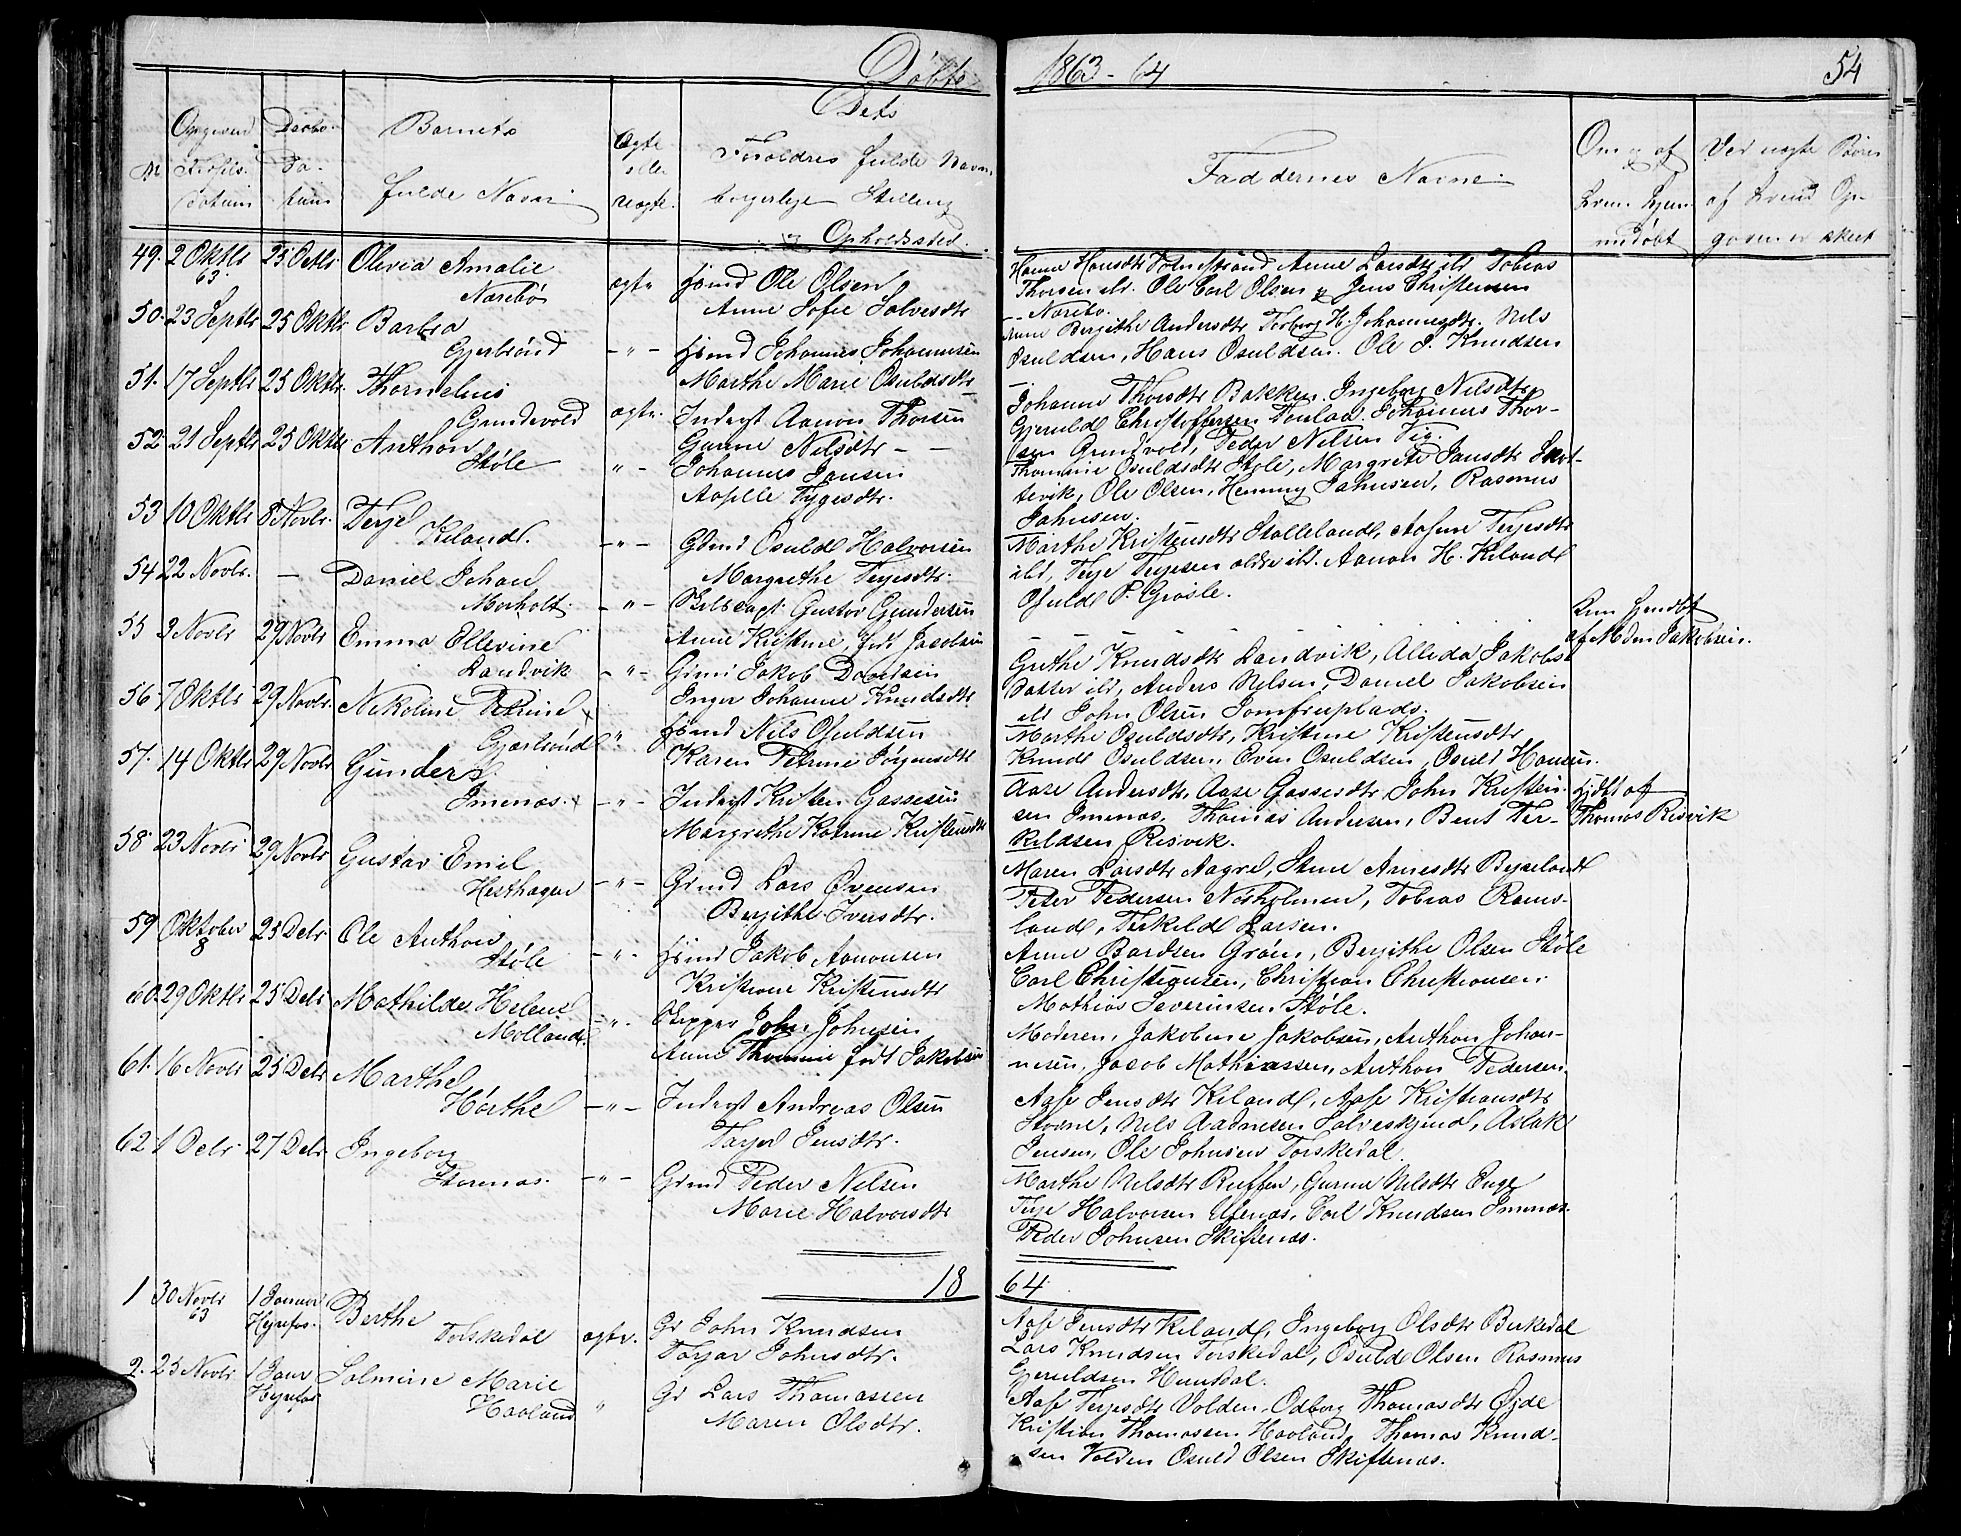 Døbte
1863-64
54
No
Opgivend Fødsels Datum
Daabs Datum
Barnets fulde Navn
Ægte eller uægte.
Dets Foreldres fulde Navn borgerlige Stilling og Opholdssted.
Faddernes Navne
Om og af hvem hjemmedøbt
Ved uægte Børn af hvem Opgaven er skeet
49. 2 Oktbr 63 25 Octbr Olivia Amalie
Narebø ægte Gbmd Ole Olsen
Anne Sofie Salvesdtr
Hanne Hansdtr Tømstrand Anne Larsdtr ibd Tobias
Thorsen ibd. Ole Carl Olsen og Jens Christensen
Narebo.
50. 23 Septbr 25 Oktbr Barbra
Gjerbrønd -"- Gbmd Johannes Johannesen
Marthe Marie Osuldsdtr
Anne Bergithe Andersdtr Torborg H. Johannesdtr. Nels
Osuldsen, Hans Osuldsen. Ole J. Knudsen
51. 17 Septbr 25 Oktbr Thornelius
Grundevold ægte. Inderst Aanon Thorsen
Gurine Nilsdtr - -
Johanne Thorsdtr Bakken. Ingeborg Nilsdtr
Gjeruld Christoffersen Johannes Thor-
sen Grundvold, Peder Nilsen
52. 21 Septbr 25 Oktbr Anthon
Støle "- Johannes Jansen
Aaselle Tygesdtr.
Thomine Osuldsdtr Støle, Margrete Jansdtr Skot-
tevik, Ole Olsen, Henning Jahnsen, Rasmus
Jahnsen.
53 10 Oktbr 8 Novbr. Terje
Kiland. -"- Gbmd Osuld Halvorsen
Margrethe Terjesdtr.
Marthe Kristensdtr Stalleland, Aasine Terjesdtr
ibd, Terje Terjesen aldre ibd. Aanon H. Kiland
Osuld P. Grosle.
54 22 Novbr. - Daniel Johan
Morholt. -"- Gustav Gundersen
Anne Kristine, født Jacobsen
- - - - - -
af Mdm Jakobsen.
55 3 Novbr 29 Novbr Emma Ellevine
Landvik -"- Gbmd Jakob Davidsen
Inger Johanne Knudsdtr
Grethe Knudsdtr Landvik, Allida Jakobs
datter ibd, Anders Nelsen, Daniel Jakobsen
ibd John Olsen Jomfruplads.
56. 7 Oktbr 29 Novbr. Nikoline Petrine
Gjærbrønd " Gbmd Nils Osuldsen
Karen Petrine Jørgensdtr
Marthe Osuldsdtr, Kristine Kristensdtr
Knud Osuldsen, Even Osuldsen, Osuld Hansen.
57. 14 Oktbr 29 Novbr Gunder
Imenæs. -"- Inderst Kristen Gassesen
Margrethe Katrine Kristensdtr
Aase Andersdtr, Aase Gassesdtr, John Kristen-
sen Imenæs, Thomas Andersen, Bent Ter-
keldsen Risvik.
Hjdbt af
Thomas Risvik
58. 23 Novbr 29 Novbr Gustav Emil
Hesthagen -"- Gbmd Lars Evensen
Bergithe Iversdtr.
Maren Larsdtr Aagre, Stine Arnesdtr Byseland
Peter Pedersen Nosholmen, Tobias Rams-
land, Terkeld Larsen.
59 Oktober 8 25 Debr. Ole Anthon
Støle -"- Gbmd Jakob Aanonsen
Kristiane Kristensdtr
Anne Bardsen Grøm, Bergithe Olsen Støle
Carl Christiansen, Christian Christiansen.
Mathias Severinsen Støle.
60. 29 Oktbr 25 Debr Mathilde Helene
Molland -"- Skipper John Johnsen
Anne Thomine født Jakobsen
Moderen, Jakobine Jakobsen, Anthon Johan-
nesen, Jacob Mathiassen, Anthon Pedersen.
61. 16 Novbr 25 Debr Marthe
Hørthe -"- Inderst Andreas Olsen
Tarjer Jensdtr.
Aase Jensdtr Kiland, Aase Kristiansdtr
Stoene, Nels Aadnesen Salveskjend, Aslak
Jensen, Ole Johnsen Torskedal.
62. 1 Debr 27 Debr Ingeborg
Stornæs. -"- Gbmd Peder Nilsen
Marie Halvorsdtr
Marthe Nilsdtr Ruffen, Gurine Nilsdtr Enge
Terje Halvorsen Ufenæs, Carl Knudsen Imenæs.
Peder Johnsen Skiftenæs.
1864
1 30 Novbr 63 1 Januar Hyrefos. Berthe
Torskedal ægte. Gr John Knudsen
Tarjar Johnsdtr.
Aase Jensdtr Kiland, Ingeborg Olsdtr Birkedal
Lars Knudsen Torskedal, Osuld Olsen Rasmus
Gjeruldsen Hunsdal.
2. 25 Novbr. 1 Janr Hyrefos Salmine Marie
Haaland " Gr Lars Thomassen
Maren Olsdtr.
Aase Terjesdtr Volden. Odborg Thomasdtr Øjde
Kristian Thomassen Haaland, Thomas Knud-
sen Volden Osuld Olsen Skiftenæs.